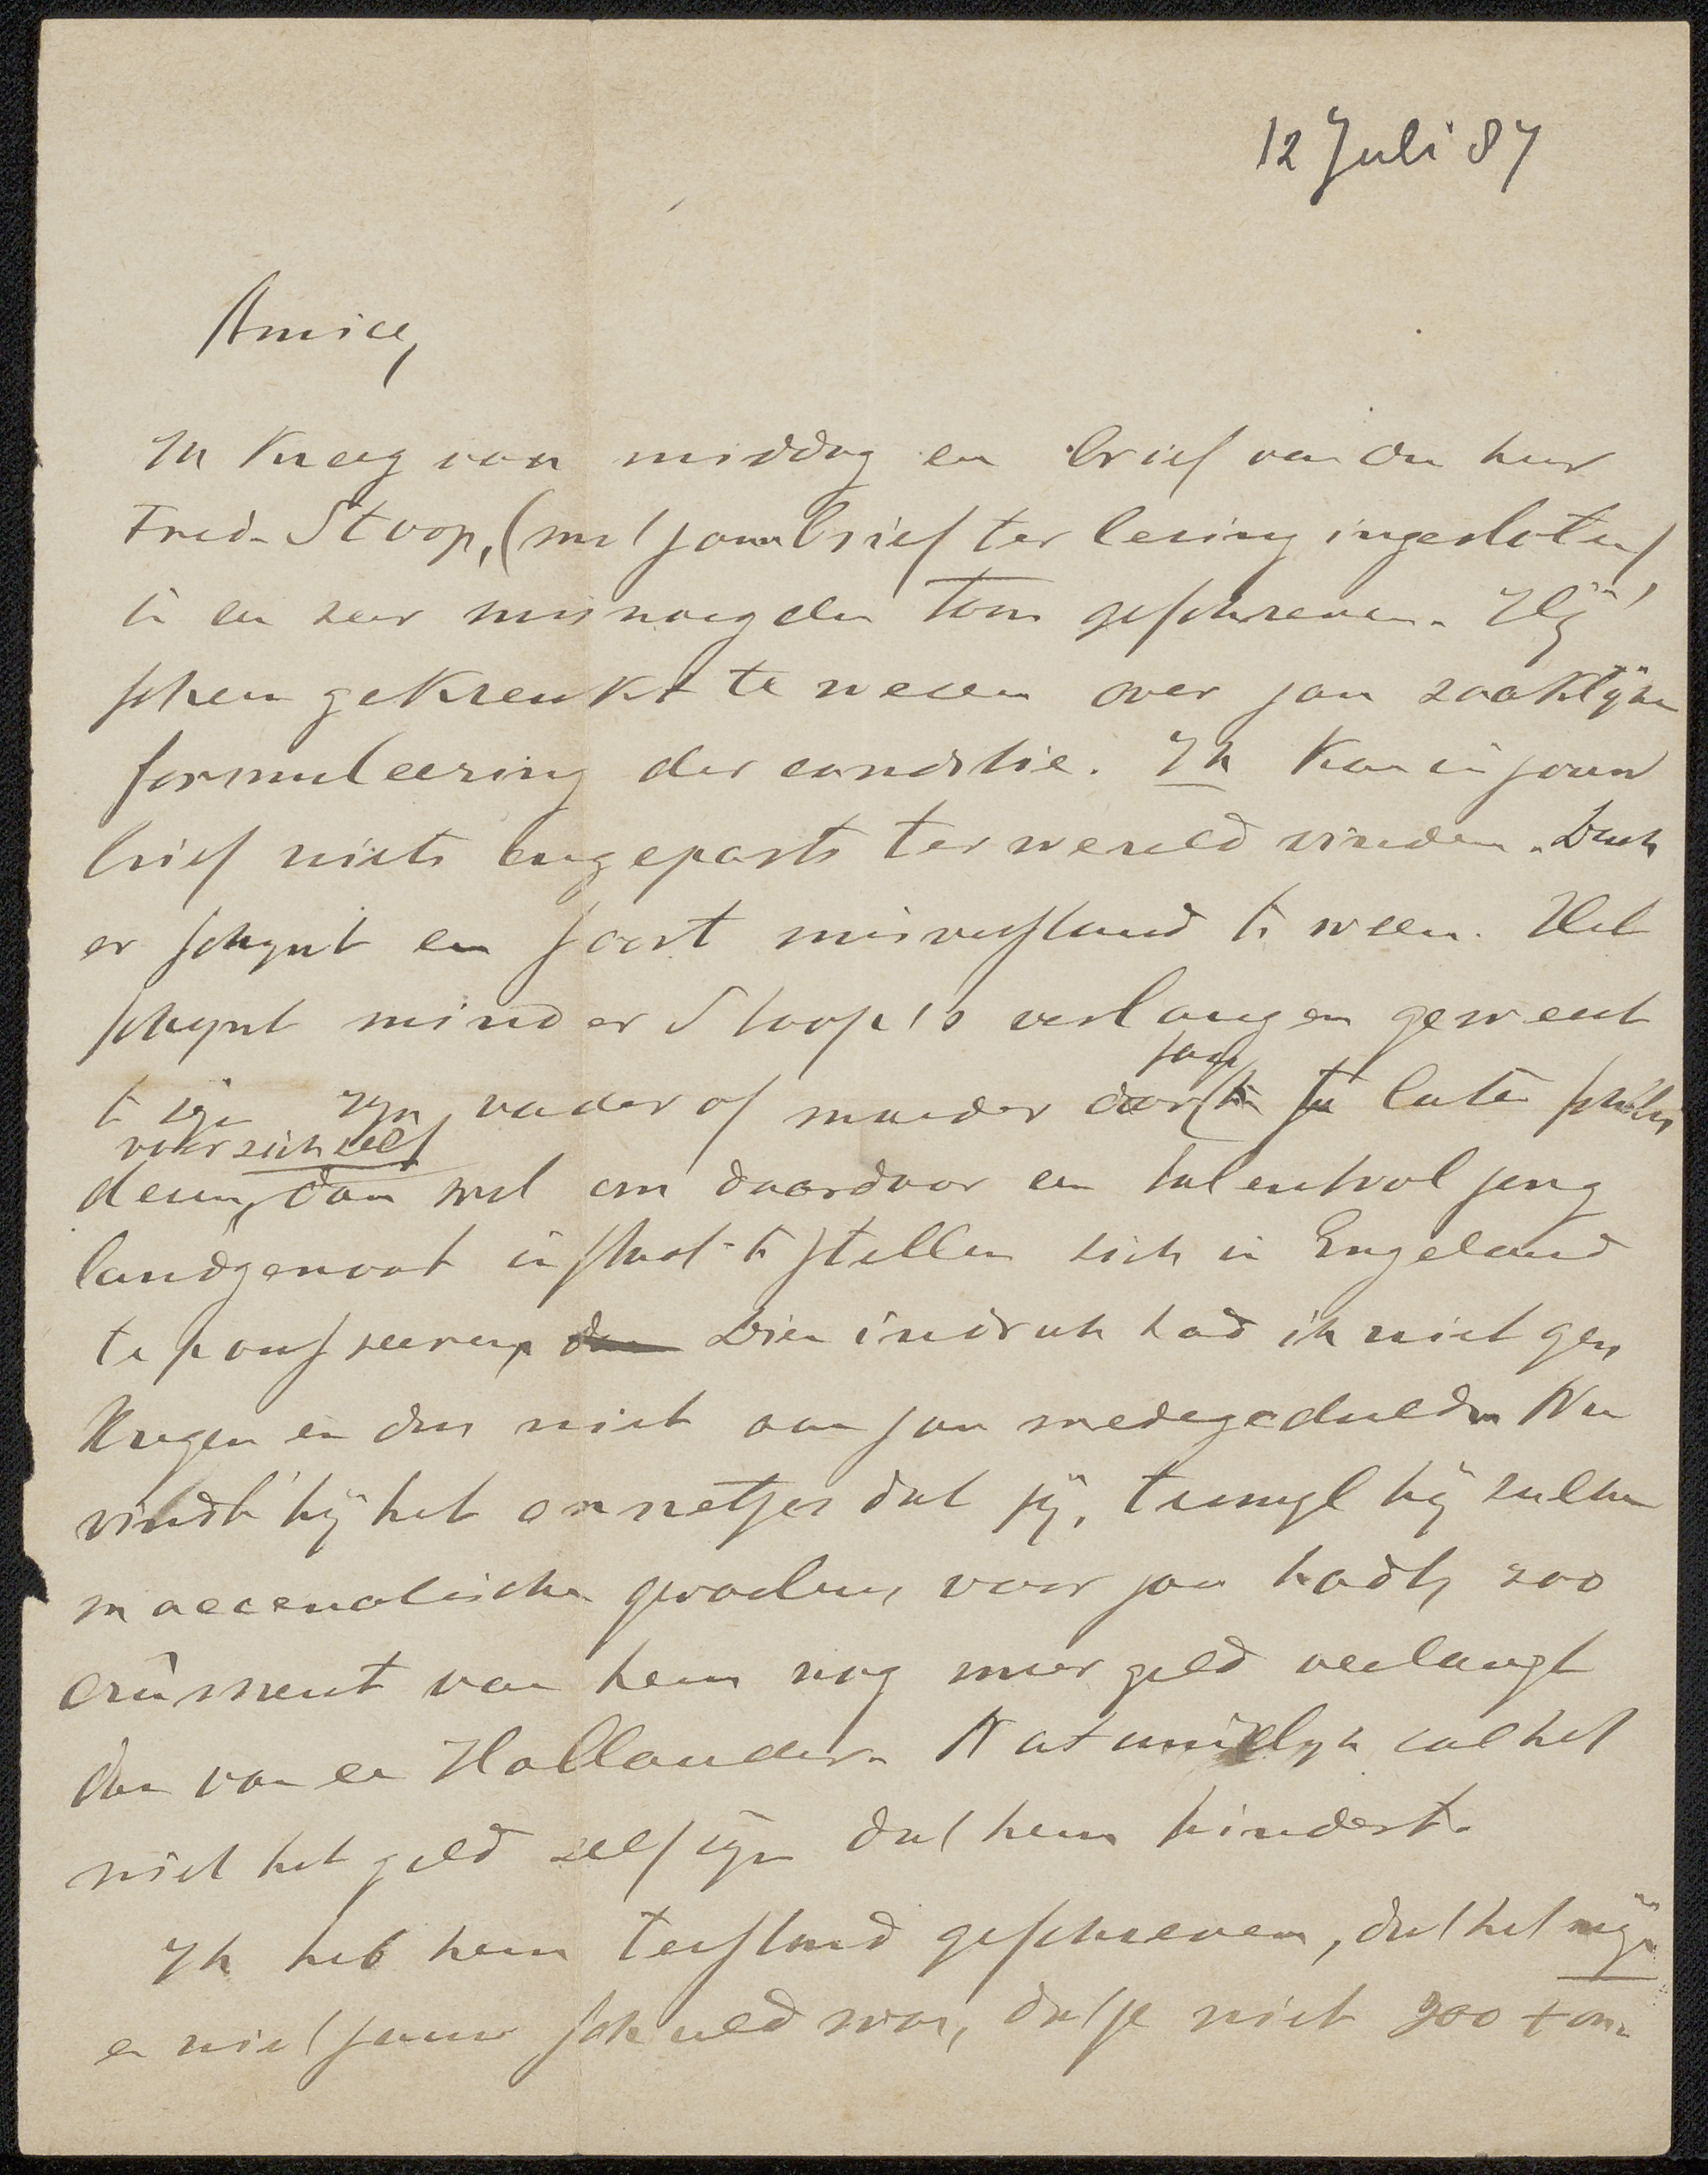 12 Juli 87
Amice,
Ik kreeg van middag een brief van den heer
Fred. Stoop, (met jouw brief ter lezing ingesloten)
in een zeer misnoegden toon geschreven. Hij
scheen gekrenkt te wezen over jou zaaklijke
formuleering der conditie. Ik kan in jouw
brief niets ongepasts ter wereld vinden. Doch
er schynt een soort misverstand te wezen. Het
schynt minder Stoop's verlangen geweest
te zijn zyn vader of moeder door jou te laten schil
voor zich zelf
deren, dan wel om daardoor een talentvol jong
landgenoot in staat te stellen zich in Engeland
te pousseeren, Dien indruk had ik niet ge,
kregen en dus niet aan jou medegedeeld. Nu
vindt hij het onnetjes dat jij, terwyl hij zulke
maecenatische gevoelens voor jou hadt, zoo
crûment van hem nog meer geld verlangt
dan van een Hollander. Natuurlijk zal het
niet het geld zelf zijn dat hem hindert.
Ik heb hem terstond geschreven, dat het mijn
en niet jouw schuld was, dat je niet zoo +om